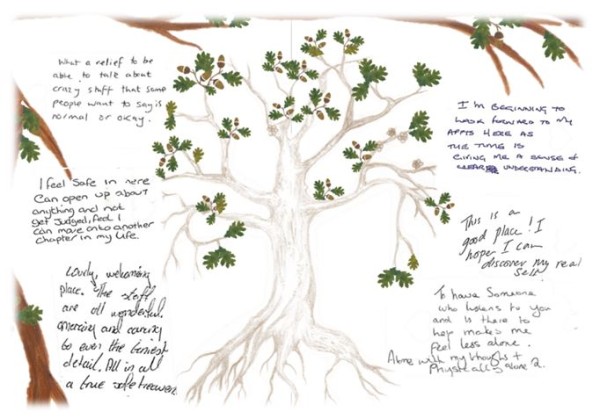 What a relief to be
able to talk about
crazy stuff that some
people want to say is
normal or okay.
I feel Safe in here
Can open up about
anything and not
get Judged, feel I
can move onto another
chapter in my life.
Lovely, welcoming
place. The staff
are all wonderful.
amazing and caring
to even the tiniest
detail. All in all
a true safe heaven.
I'm BEGINNING TO
LOOK FORWARD TO MY
APPTS HERE AS
THE TIME IS
GIVING ME A SENSE OF
CLEAR UNDERSTANDING.
This is a
good place! I
hope I can
discover my real
self
To have Someone
who listens to you
and is there to
help makes me
feel less alone.
Alone with my thoughts +
Physically alone